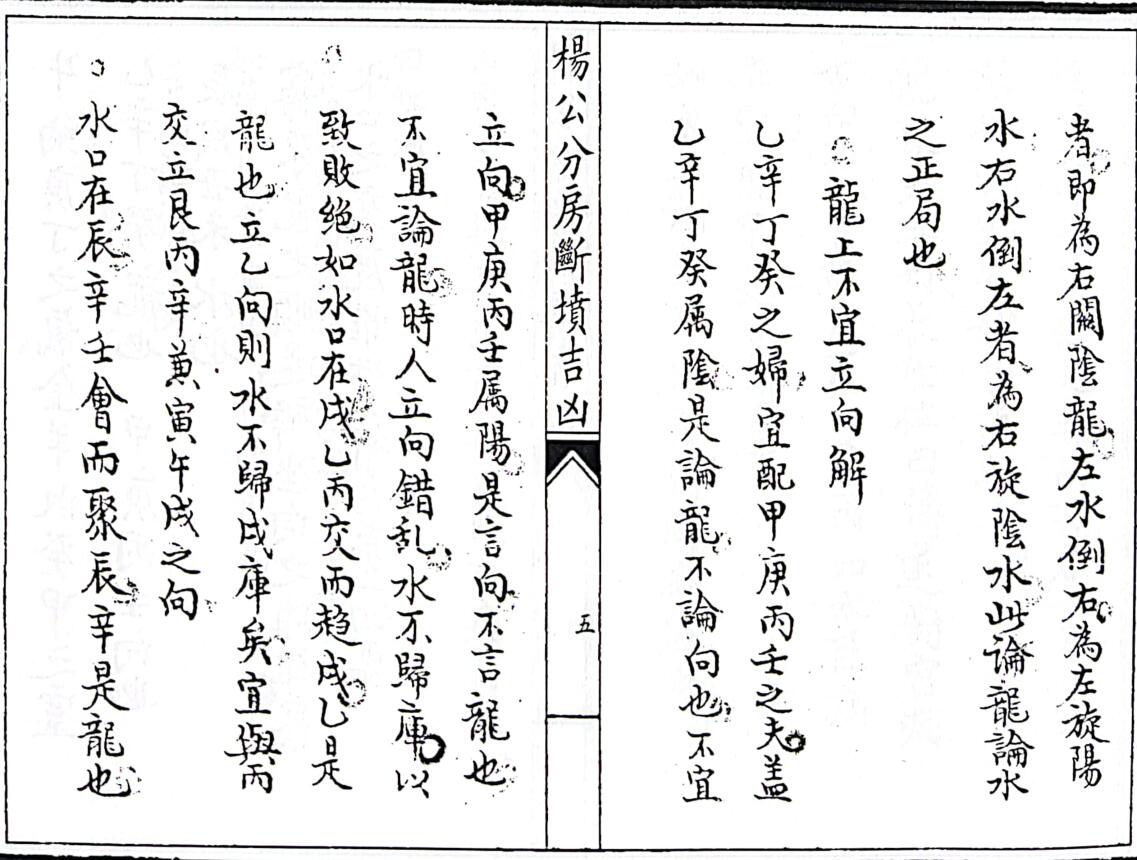 者即為右關陰龍左水倒右為左旋陽
水右水倒左者為右旋陰水此論龍論水
之正局也
龍上不宜立向解
乙辛丁癸之婦宜配甲庚丙壬之夫盖
乙辛丁癸属陰是論龍不論向也不宜
楊公分房斷墳吉凶
五
立向甲庚丙壬属陽是言向不言龍也
不宜論龍時人立向錯乱水不歸庫以
致敗絶如水口在戌乙丙交而趋戌乙是
龍也立乙向則水不歸戌庫矣宜與丙
交立艮丙辛兼寅午戌之向
水口在辰辛壬會而聚辰辛是龍也